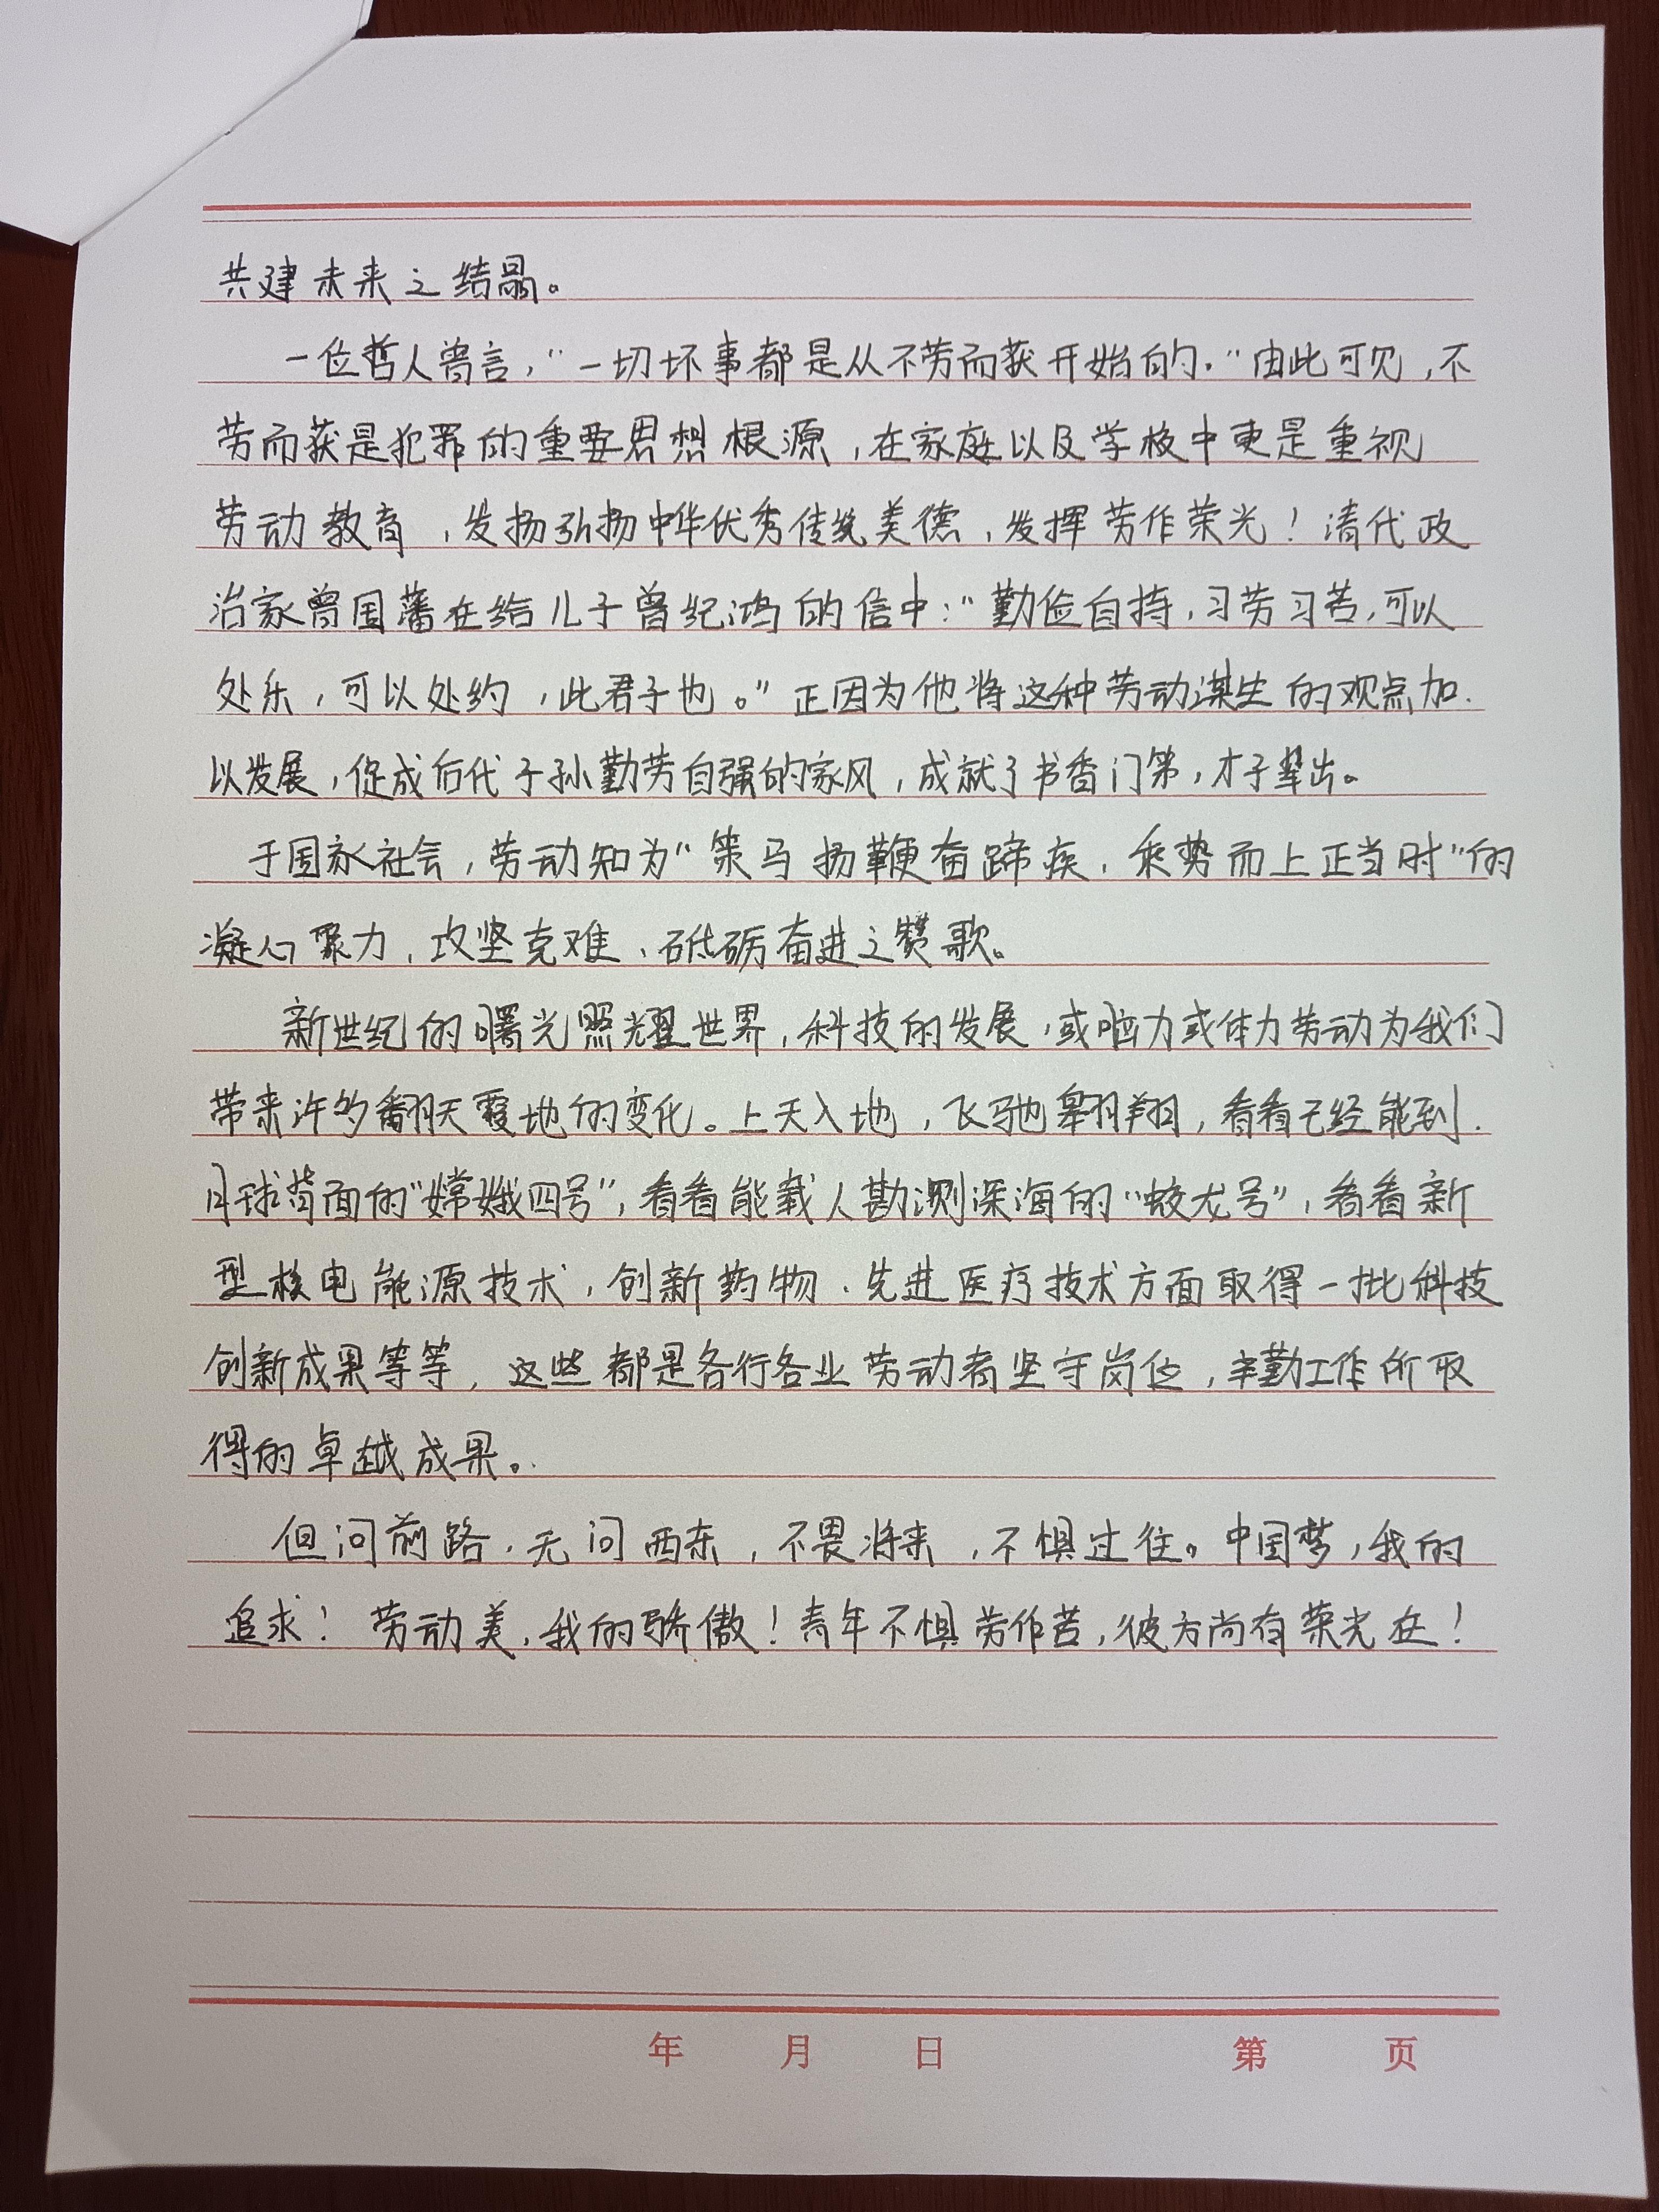 共建未来之结晶。
一位哲人曾言，“一切坏事都是从不劳而获开始的．”由此可见，不
劳而获是犯罪的重要思想根源，在家庭以及学校中更是重视
劳动教育，发扬弘扬中华优秀传统美德，发挥劳作荣光！清代政
治家曾国藩在给儿子曾纪鸿的信中：“勤俭自持，习劳习苦，可以
处乐，可以处约，此君子也。”正因为他将这种劳动谋生的观点加
以发展，促成后代子孙勤劳自强的家风，成就了书香门第，才子辈出。
于国家社会，劳动知为“策马扬鞭奋蹄疾，乘势而上正当时”的
凝心聚力，攻坚克难、砥砺奋进之赞歌。
新世纪的曙光照耀世界，科技的发展，或脑力或体力劳动为我们
带来许多翻天覆地的变化。上天入地，飞驰翱翔，看看已经能到
月球背面的“嫦娥四号”，看看能载人勘测深海的“蛟龙号”，看看新
型核电能源技术，创新药物、先进医疗技术方面取得一批科技
创新成果等等，这些都是各行各业劳动者坚守岗位，辛勤工作所取
得的卓越成果。
但问前路，无问西东，不畏将来，不惧过往。中国梦，我的
追求！劳动美，我的骄傲！青年不惧劳作苦，彼方尚有荣光在！
年 月 日 第 页